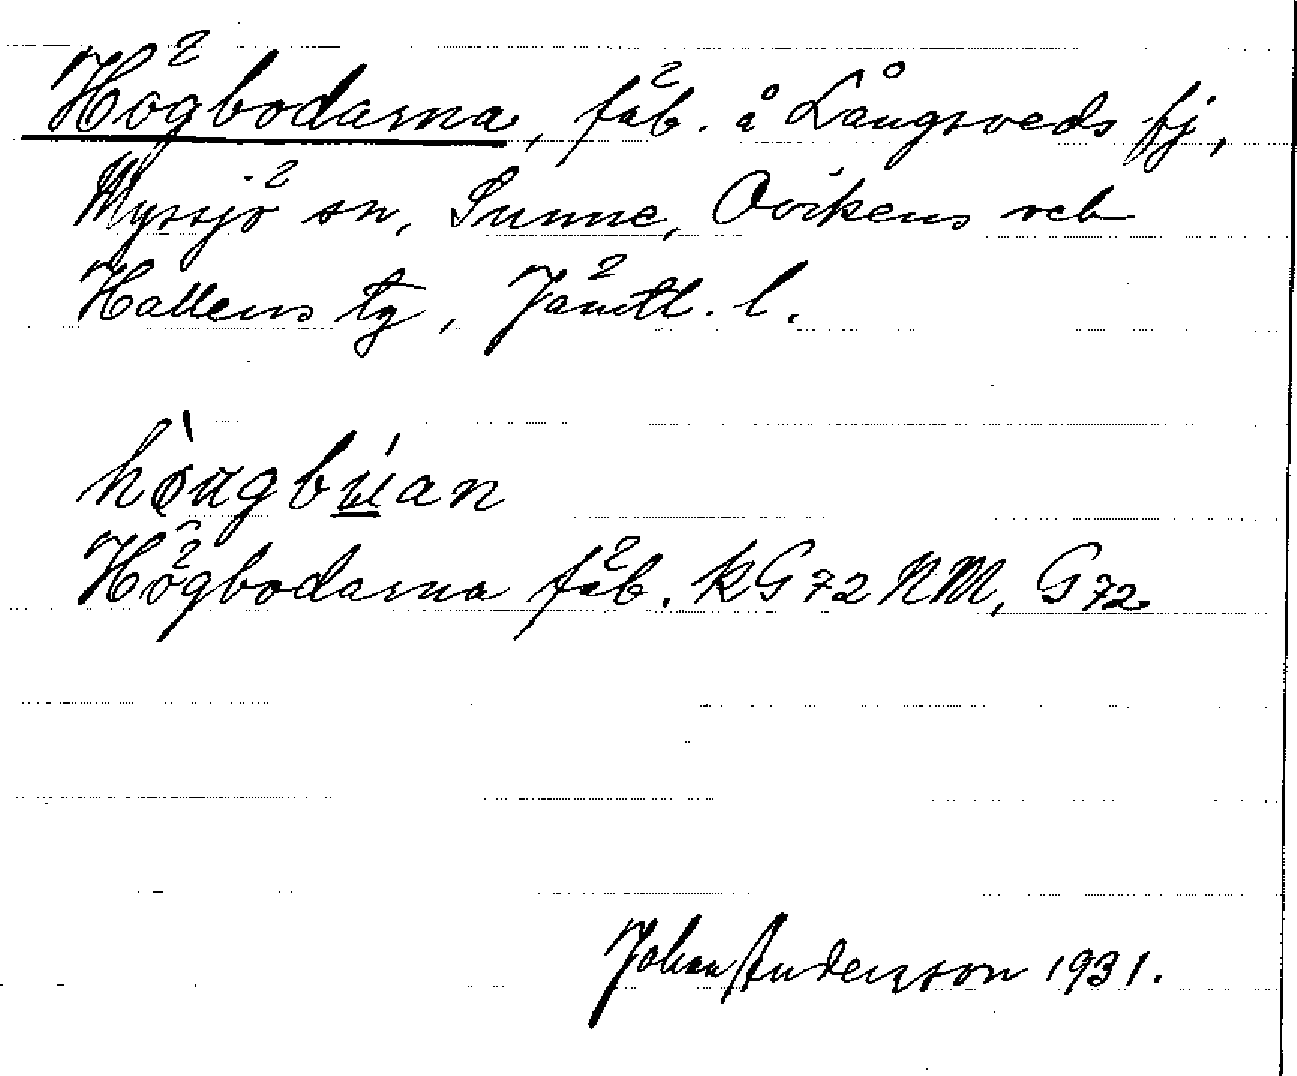 Högbodarna, fäb. å Långsveds fj,
Myssjö sn, Sunne, Ovikens och
Hallens tg, Jämtl. l.
Högbodarna fäb. KG72NM, G72.
Johan Anderson 1931.